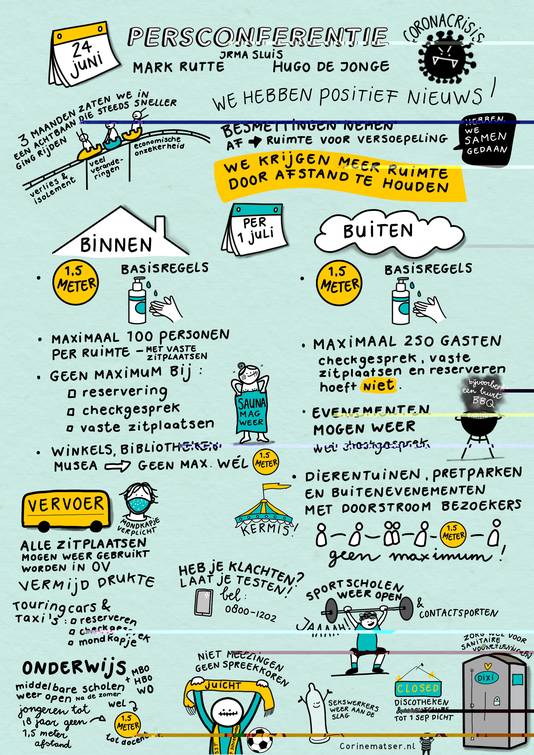 24 JUNI
PERSCONFERENTIE
IRMA SLUIS
MARK RUTTE HUGO DE JONGE
CORONACRISIS
WE HEBBEN POSITIEF NIEUWS!
3 MAANDEN ZATEN WE IN
EEN ACHTBAAN DIE STEEDS SNELLER
GING RIJDEN
verlies & isolement
veel verande-
ringen
economische
onzekerheid
BESMETTINGEN NEMEN
AF → RUIMTE VOOR VERSOEPELING
HEBBEN
WE
SAMEN
GEDAAN
WE KRIJGEN MEER RUIMTE
DOOR AFSTAND TE HOUDEN
BINNEN
PER
1 juli
BUITEN
1,5
METER
BASISREGELS
• MAXIMAAL 100 PERSONEN
PER RUIMTE - MET VASTE
ZITPLAATSEN
• GEEN MAXIMUM BIJ:
reservering
checkgesprek
vaste zitplaatsen
SAUNA
MAG
WEER
• WINKELS, BIBLIOTHEKEN,
MUSEA ⇨ GEEN MAX. WÉL 1,5 METER
1,5
METER
BASISREGELS
• MAXIMAAL 250 GASTEN
checkgesprek, vaste
zitplaatsen en reserveren
hoeft niet.
• EVENEMENTEN
MOGEN WEER
wel checkgesprek
bijvoorbeeld
een buurt
BBQ
• DIERENTUINEN, PRETPARKEN
EN BUITENEVENEMENTEN
MET DOORSTROOM BEZOEKERS
1,5
METER
geen maximum!
KERMIS!
VERVOER
MONDKAPJE
VERPLICHT
ALLE ZITPLAATSEN
MOGEN WEER GEBRUIKT
WORDEN IN OV
VERMIJD DRUKTE
Touringcars &
TAXI'S: reserveren
checkgesprek
mondkapje
HEB JE KLACHTEN?
LAAT JE TESTEN!
bel:
0800-1202
SPORTSCHOLEN
WEER OPEN
& CONTACTSPORTEN
JAAAA!
ONDERWIJS
middelbare scholen
weer open na de zomer
jongeren tot
18 jaar geen
1,5 meter
afstand
MBO
HBO
WO
wel
1,5
METER
tot docent
NIET MEEZINGEN
GEEN SPREEKKOREN
JUICHT
SEKSWERKERS
WEER AAN DE
SLAG
CLOSED
DISCOTHEKEN
TOT 1 SEP DICHT
ZORG WEL VOOR
SANITAIRE
VOORZIENINGEN
DIXI
Corinematser.nl